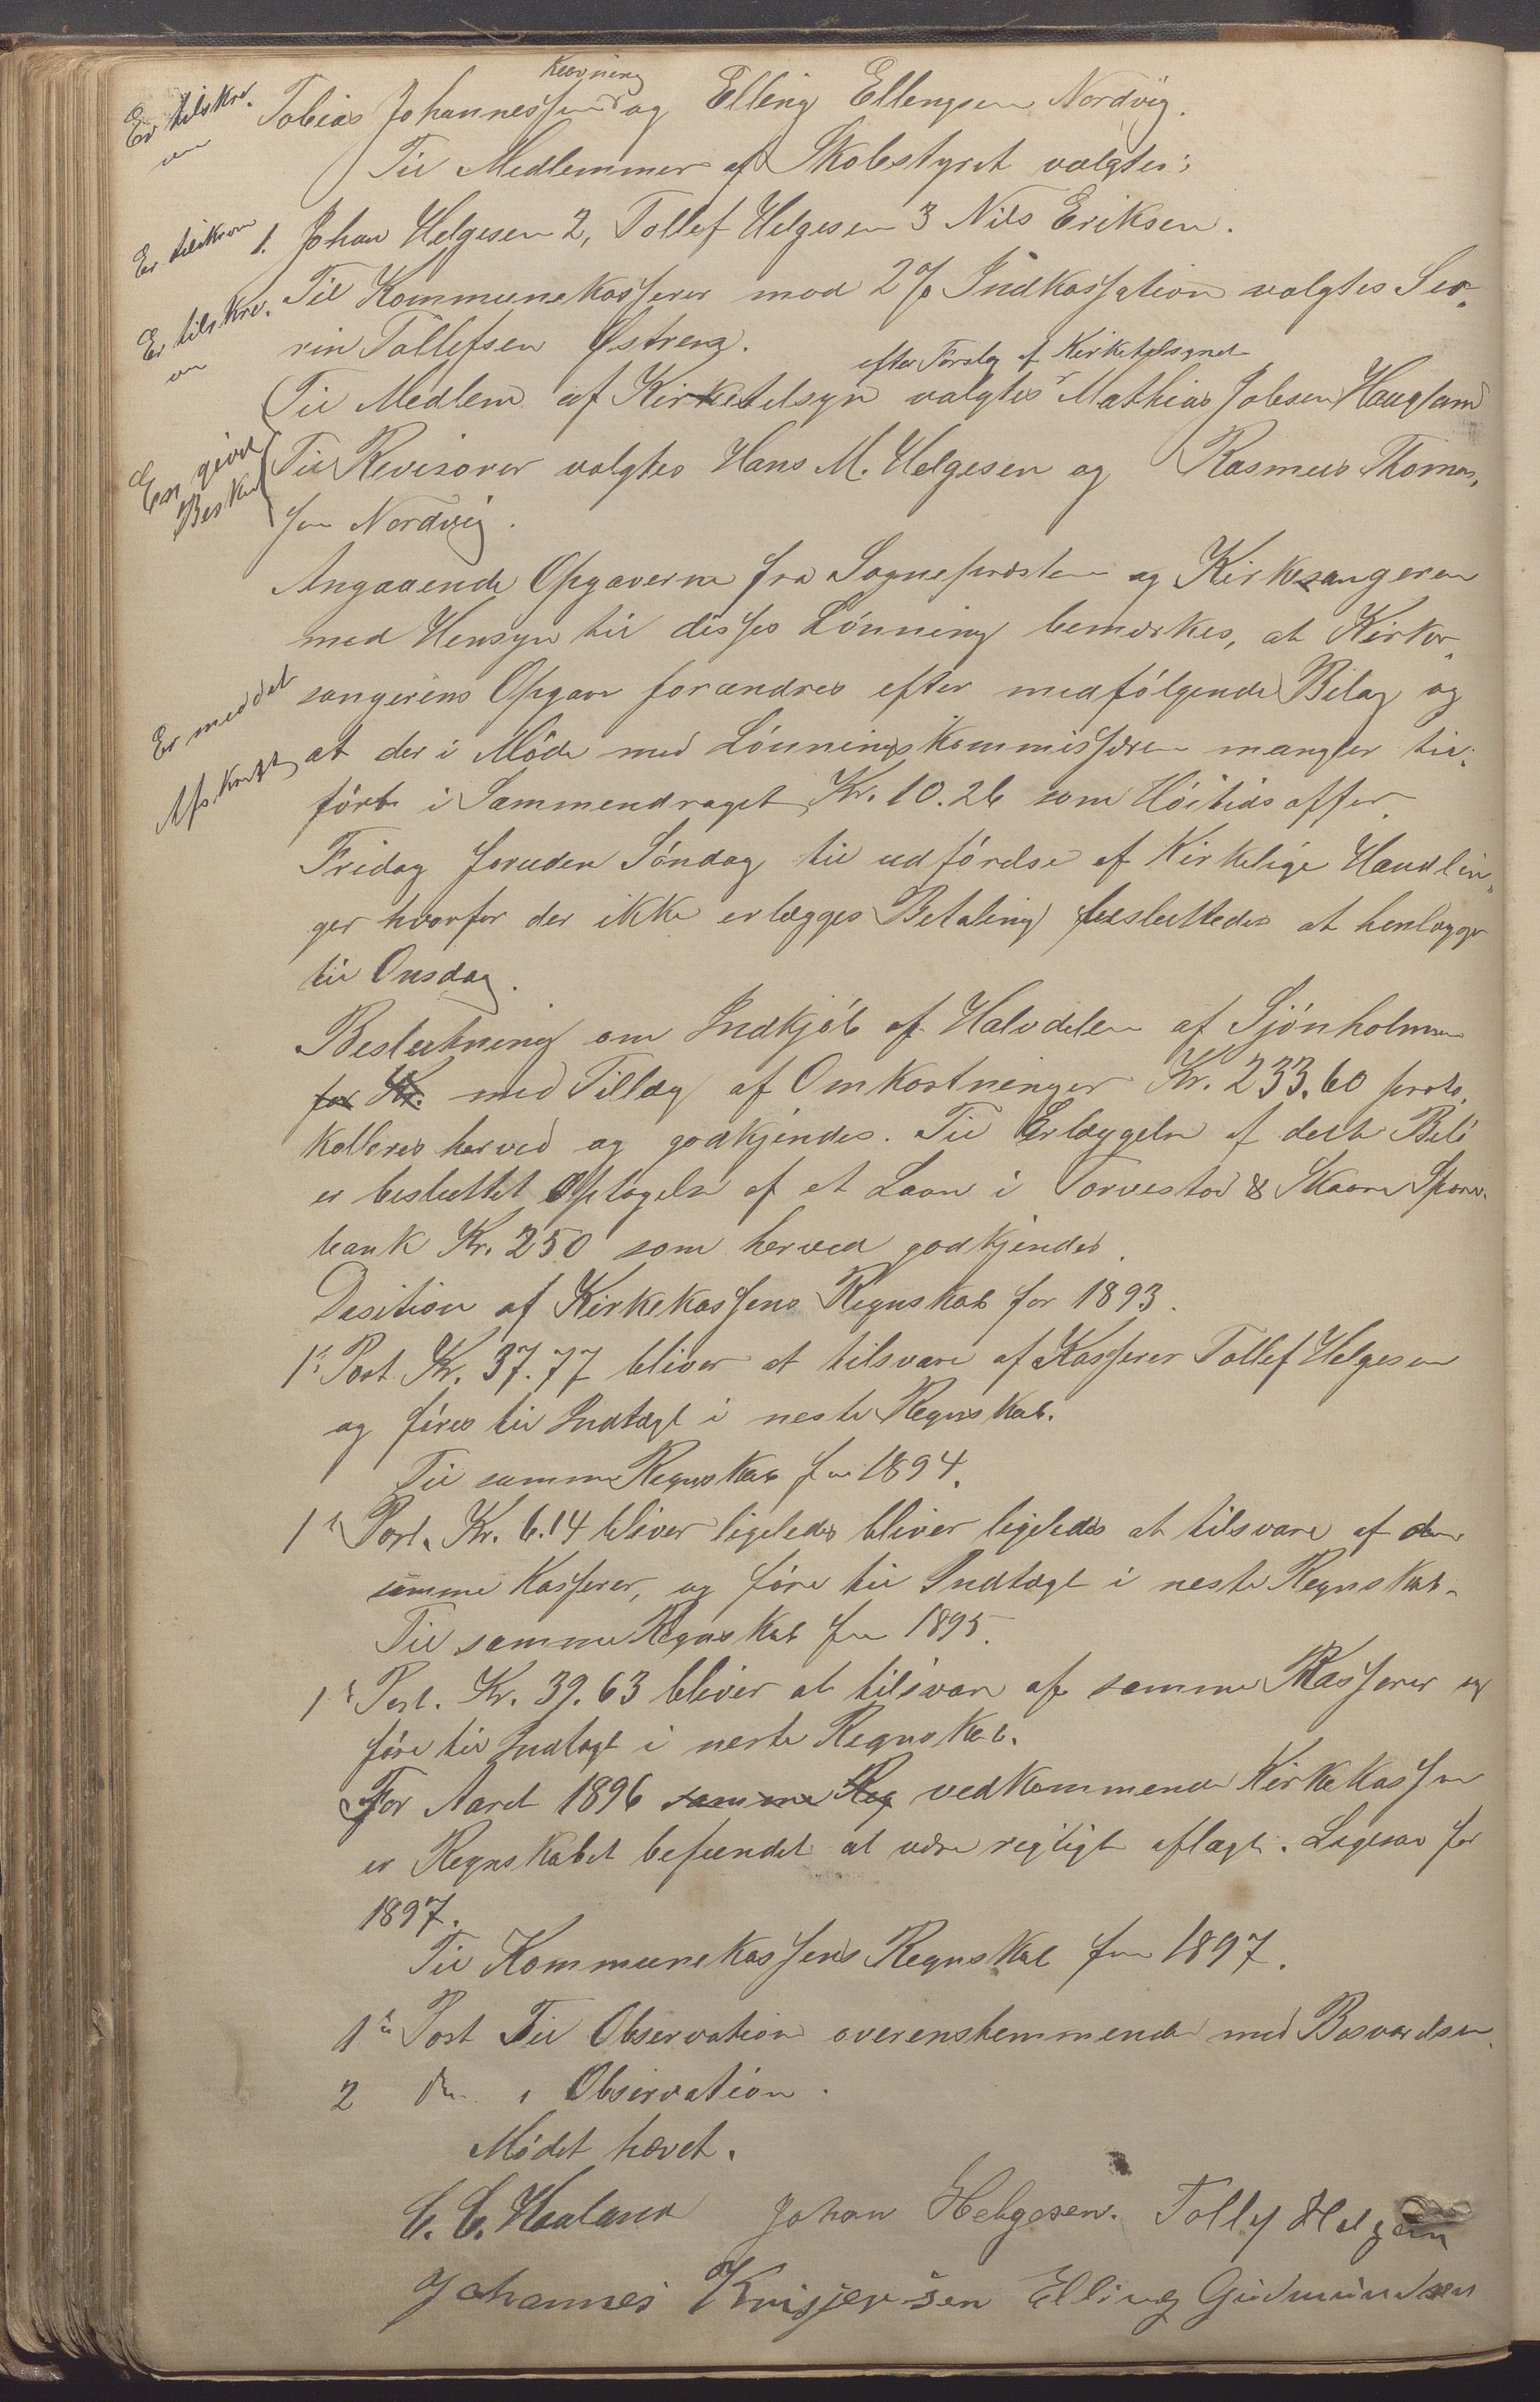 Er tilskre-
ven
Tobias Johannessen Kvorning og Elling Ellingsen Nordvig.
Til Medlemmer af Skolestyret valgtes:
Er tilskreven
1. Johan Helgesen 2, Tollef Helgesen 3 Nils Eriksen.
Er tilskre-
ven
Til Kommunekasserer mod 2 % Indkassation valgtes Sev-
rin Tollefsen Østrem.
efter Forslag af Kirketilsynet
Til Medlem af Kirketilsyn valgtes Mathias Jobsen Haugland
Er givet
Besked
Til Revisorer valgtes Hans M. Helgesen og Rasmus Thomas-
sen Nordvig.
Angaaende Opgaverne fra Sognepræsten og Kirkesangeren
med Hensyn til disses Lönning bemærkes, at Kirke-
sangerens Opgave forandres efter medfölgende Bilag og
Er meddelt
Afskrift
at der i Möde med Lönningskommissæren mangler til-
fört i Sammendraget, Kr. 10.26 som Höitidsoffer.
Fridag foruden Söndag til udförelse af Kirkelige Handlin-
ger hvorfor der ikke erlægges Betaling besluttedes at henlægge
til Onsdag.
Beslutning om Indkjöb af Halvdelen af Sjönholmen
for Kr. med Tillæg af Omkostninger Kr. 233.60 proto-
kolleres herved og godkjendes. Til Erlæggelse af dette Belö
er besluttet Optagelse af et Laan i Torvestad & Skaare Spare-
bank Kr. 250 som herved godkjendes.
Desition af Kirkekassens Regnskab for 1893.
1ste Post Kr. 37.77 bliver at tilsvare af Kasserer Tollef Helgesen
og föres til Indtægt i neste Regnskab.
Til samme Regnskab for 1894.
1ste Post. Kr. 6.14 bliver ligeledes bliver ligeledes at tilsvare af den
samme Kasserer, og före til Indtægt i neste Regnskab.
Til samme Regnskab for 1895.
1ste Post. Kr. 39.63 bliver at tilsvare af samme Kasserer og
före til Indtægt i neste Regnskab.
For Aaret 1896 samme Reg vedkommende Kirkekassen
er Regnskabet befundet at være rigtigt aflagt. Ligesaa for
1897.
Til Kommunekassens Regnskab for 1897.
1ste Post Til Observation overenstemmende med Besvarelsen.
2 do. " Observation.
Mödet hævet.
Johan Helgesen. Tollef Helgesen
Johannes Elling Gudmundsen